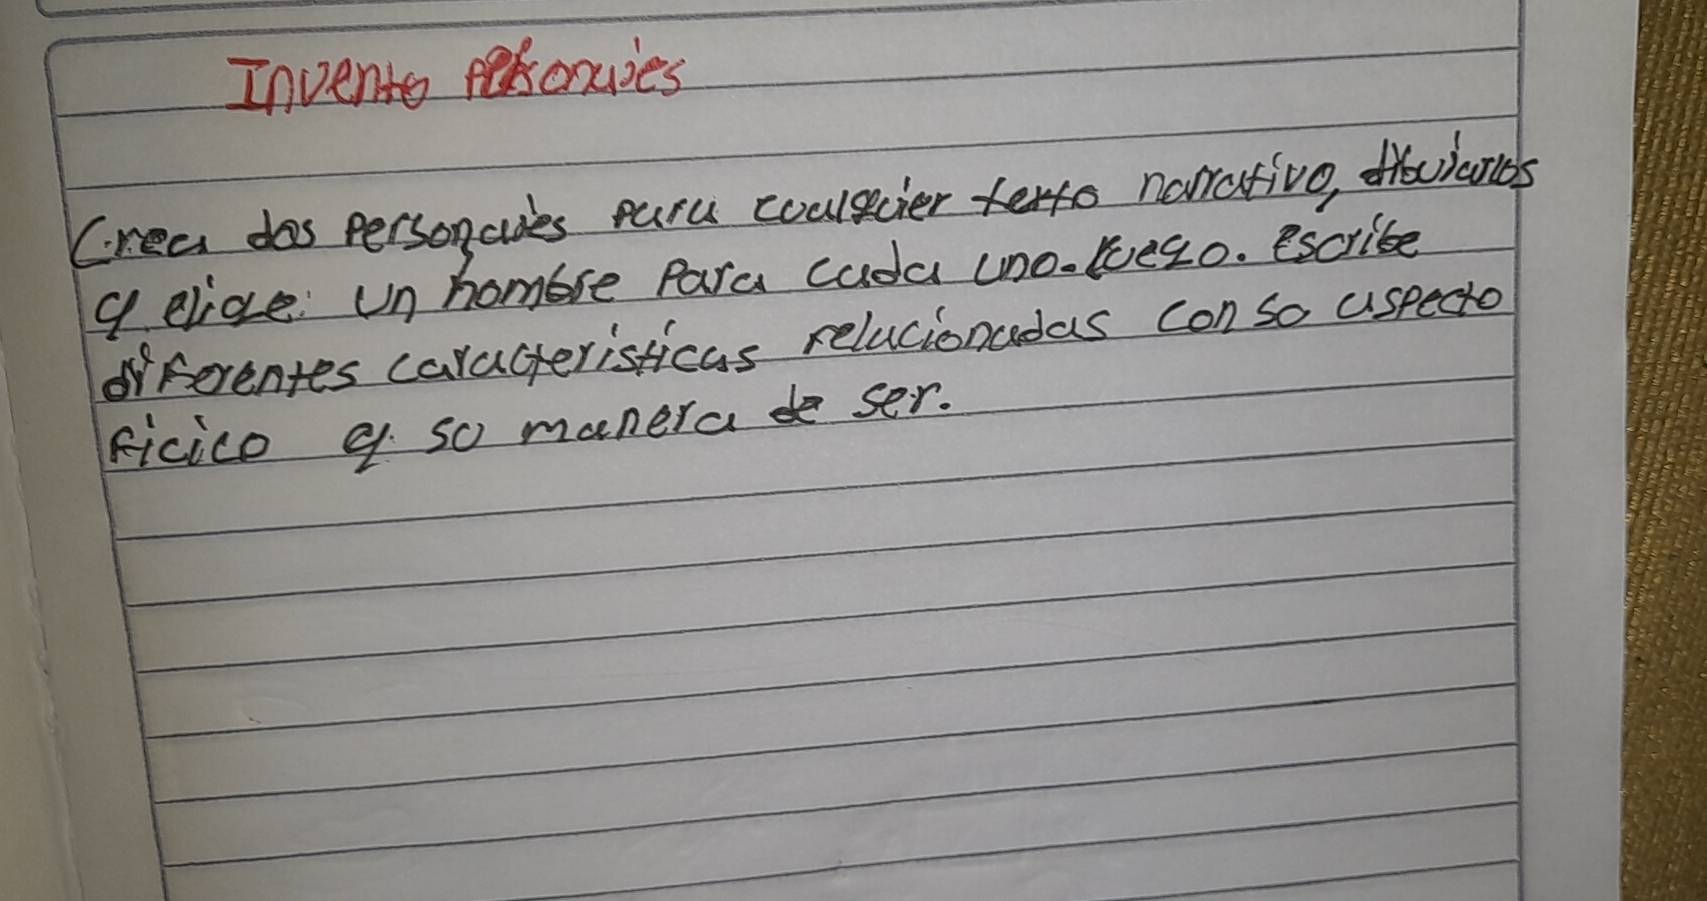 Invento personajes
Crea dos personajes para coualqcier texto narrativo, dibujarlos
y elige: un nombre para cada uno. luego. escribe
diferentes caracteristicas relacionadas con so aspecto
ficico y so manera de ser.